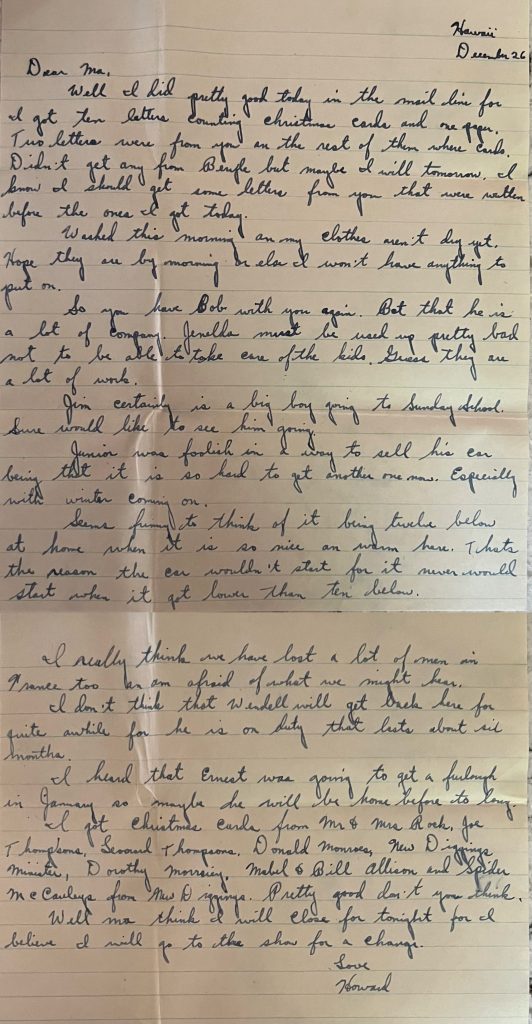 Hawaii
December 26
Dear Ma,
Well I did pretty good today in the mail line for
I got ten letters counting christmas cards and one paper.
Two letters were from you an the rest of them where cards.
Didn't get any from but maybe I will tomorrow. I
know I should get some letters from you that were written
before the ones I got today.
Washed this morning an my clothes aren't dry yet.
Hope they are by morning or else I won't have anything to
put on.
So you have Bob with you again. Bet that he is
a lot of company. Jenella must be used up pretty bad
not to be able to take care of the kids. Guess they are
a lot of work.
Jim certainly is a big boy going to Sunday School.
Sure would like to see him going.
Junior was foolish in a way to sell his car
being that it is so hard to get another one now. Especially
with winter coming on.
Seems funny to think of it being twelve below
at home when it is so nice an warm here. Thats
the reason the car wouldn't start for it never would
start when it got lower than ten below.
I really think we have lost a lot of men in
France too an am afraid of what we might hear.
I don't think that Wendell will get back here for
quite awhile for he is on duty that lasts about six
months.
I heard that Ernest was going to get a furlough
in January so maybe he will be home before to long.
I got christmas cards from Mr & Mrs Rock, Joe
Thompsons, Thompsons, Donald Monroes, New Diggings
Minister, Dorothy Morrissy, Mabel & Bill Allison and Spider
McCauleys from New Diggings. Pretty good don't you think.
Well ma think I will close for tonight for I
believe I will go to the show for a change.
Love
Howard